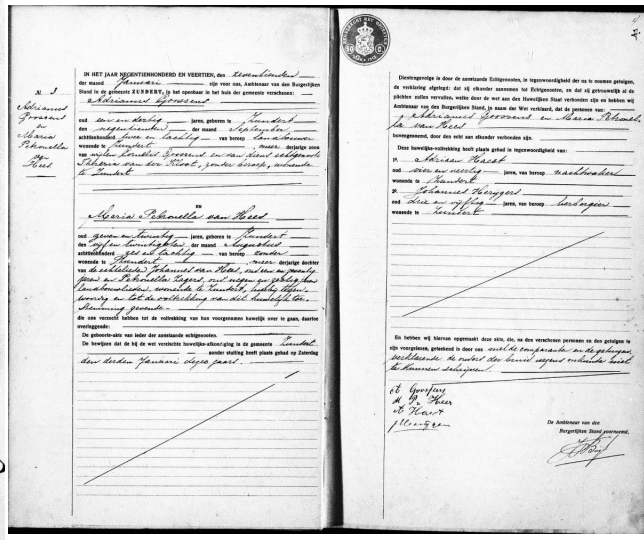 No 3
Adrianus
Goossens
en
Maria
Petronella
van
Hees
IN HET JAAR NEGENTIENHONDERD EN VEERTIEN, den zeventienden
der maand Januari zijn voor ons, Ambtenaar van den Burgerlijken
Stand in de gemeente ZUNDERT, in het openbaar in het huis der gemeente verschenen:
Adrianus Goossens
oud een en dertig jaren, geboren te Zundert
den negentienden der maand September
achttienhonderd twee en tachtig van beroep landbouwer
wonende te Zundert, meer derjarige zoon
van wijlen Cornelis Goossens en van diens echtgenoote
van der Kloot, zonder beroep, wonende
te Zundert
EN
Maria Petronella van Hees
oud zeven en twintig jaren, geboren te Zundert
den vijf en twintigsten der maand Augustus
achttienhonderd zes en tachtig van beroep zonder
wonende te Zundert, meer derjarige dochter
van de echtelieden Johannes van Hees, oud een en zeventig
jaren en Petronella Zagers, oud negen en zestig jaren
landbouwlieden wonende te Zundert, hierbij tegen-
woordig en tot de voltrekking van dit huwelijk toe-
stemming gevende.
die ons verzocht hebben tot de voltrekking van hun voorgenomen huwelijk over te gaan, daartoe
overleggende:
De geboorte-akte van ieder der aanstaande echtgenooten.
De bewijzen dat de bij de wet vereischte huwelijks-afkondiging in de gemeente Zundert
zonder stuiting heeft plaats gehad op Zaterdag
den derden Januari dezes jaars.
50 C
Dientengevolge is door de aanstaande Echtgenooten, in tegenwoordigheid der na te noemen getuigen,
de verklaring afgelegd: dat zij elkander aannemen tot Echtgenooten, en dat zij getrouwelijk al de
plichten zullen vervullen, welke door de wet aan den Huwelijken Staat verbonden zijn en hebben wij
Ambtenaar van den Burgerlijken Stand, in naam der Wet verklaard, dat de personen van:
Adrianus Goossens en Maria Petronel-
la van Hees
bovengenoemd, door den echt aan elkander verbonden zijn.
Deze huwelijks-voltrekking heeft plaats gehad in tegenwoordigheid van:
1o. Adriaan Haast
oud vier en veertig jaren, van beroep nachtwaker
wonende te Zundert
2o. Johannes Herijgers
oud drie en vijftig jaren, van beroep herbergier
wonende te Zundert
En hebben wij hiervan opgemaakt deze akte, die, na den verschenen personen en den getuigen te
zijn voorgelezen, geteekend is door ons met de comparanten en de getuigen,
verklarende de ouders der bruid wegens onkunde niet
te kunnen schrijven.
A Goossens
M P v Hees
A Haast
De Ambtenaar van den
Burgerlijken Stand voornoemd,